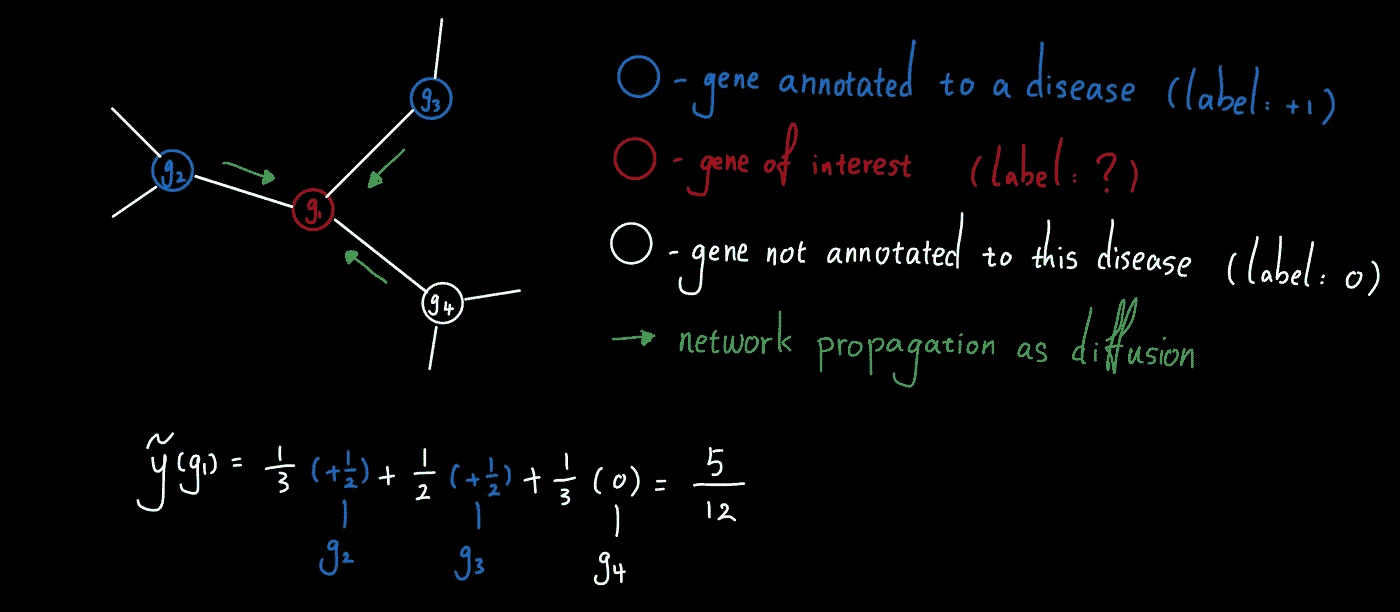 g3
g2
g1
g4
- gene annotated to a disease (label: +1)
- gene of interest (label: ?)
- gene not annotated to this disease (label: 0)
→ network propagation as diffusion
ỹ(g1) = 1/3 (+1/2) + 1/2 (+1/2) + 1/3 (0) = 5/12
g2 g3 g4